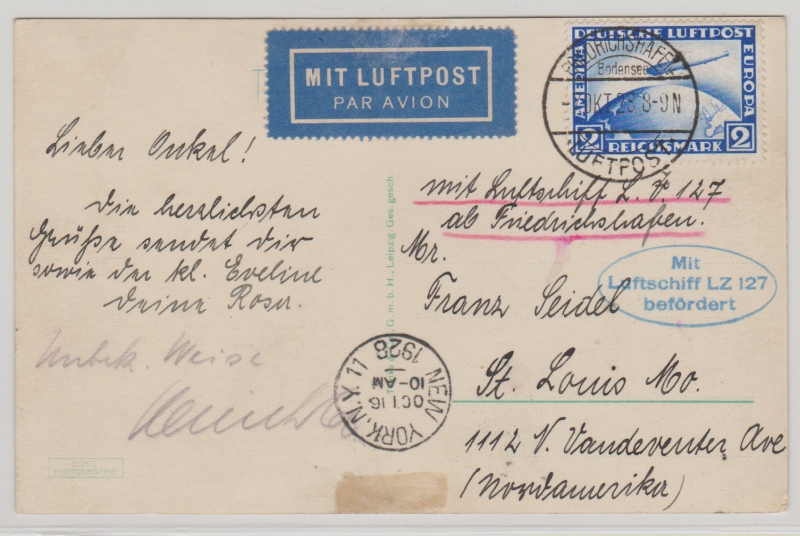 MIT LUFTPOST
PAR AVION
DEUTSCHE LUFTPOST
AMERIKA
EUROPA
2 REICHSMARK 2
FRIEDRICHSHAFEN
Bodensee
OKT 28 8-9N
LUFTPOST
Lieber Onkel!
Die herzlichsten
Grüße sendet dir
sowie der kl. Eveline
deine Rosa.
Unbek. Weise
G.m.b.H., Leipzig. Ges. gesch.
mit Luftschiff L.Z. 127
ab Friedrichshafen.
Mit
Luftschiff LZ 127
befördert
Mr.
Franz Seidel
St. Louis Mo.
1112 N. Vandeventer Ave
(Nordamerika)
NEW YORK, N.Y. 11
OCT 16
10-AM
1928
ECHTE
PHOTOGRAPHIE